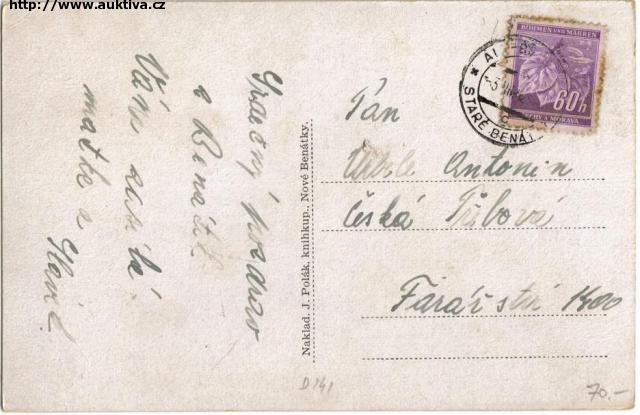 http://www.auktiva.cz
Srdečný pozdrav
z Benátek
Vám zasílá
matka a
BÖHMEN UND MÄHREN
60h
ČECHY A MORAVA
STARÉ BENÁT
Pán
Antonín
Česká Třbová
Farářství
Naklad. J. Polák, knihkup., Nové Benátky.
D141
70.-